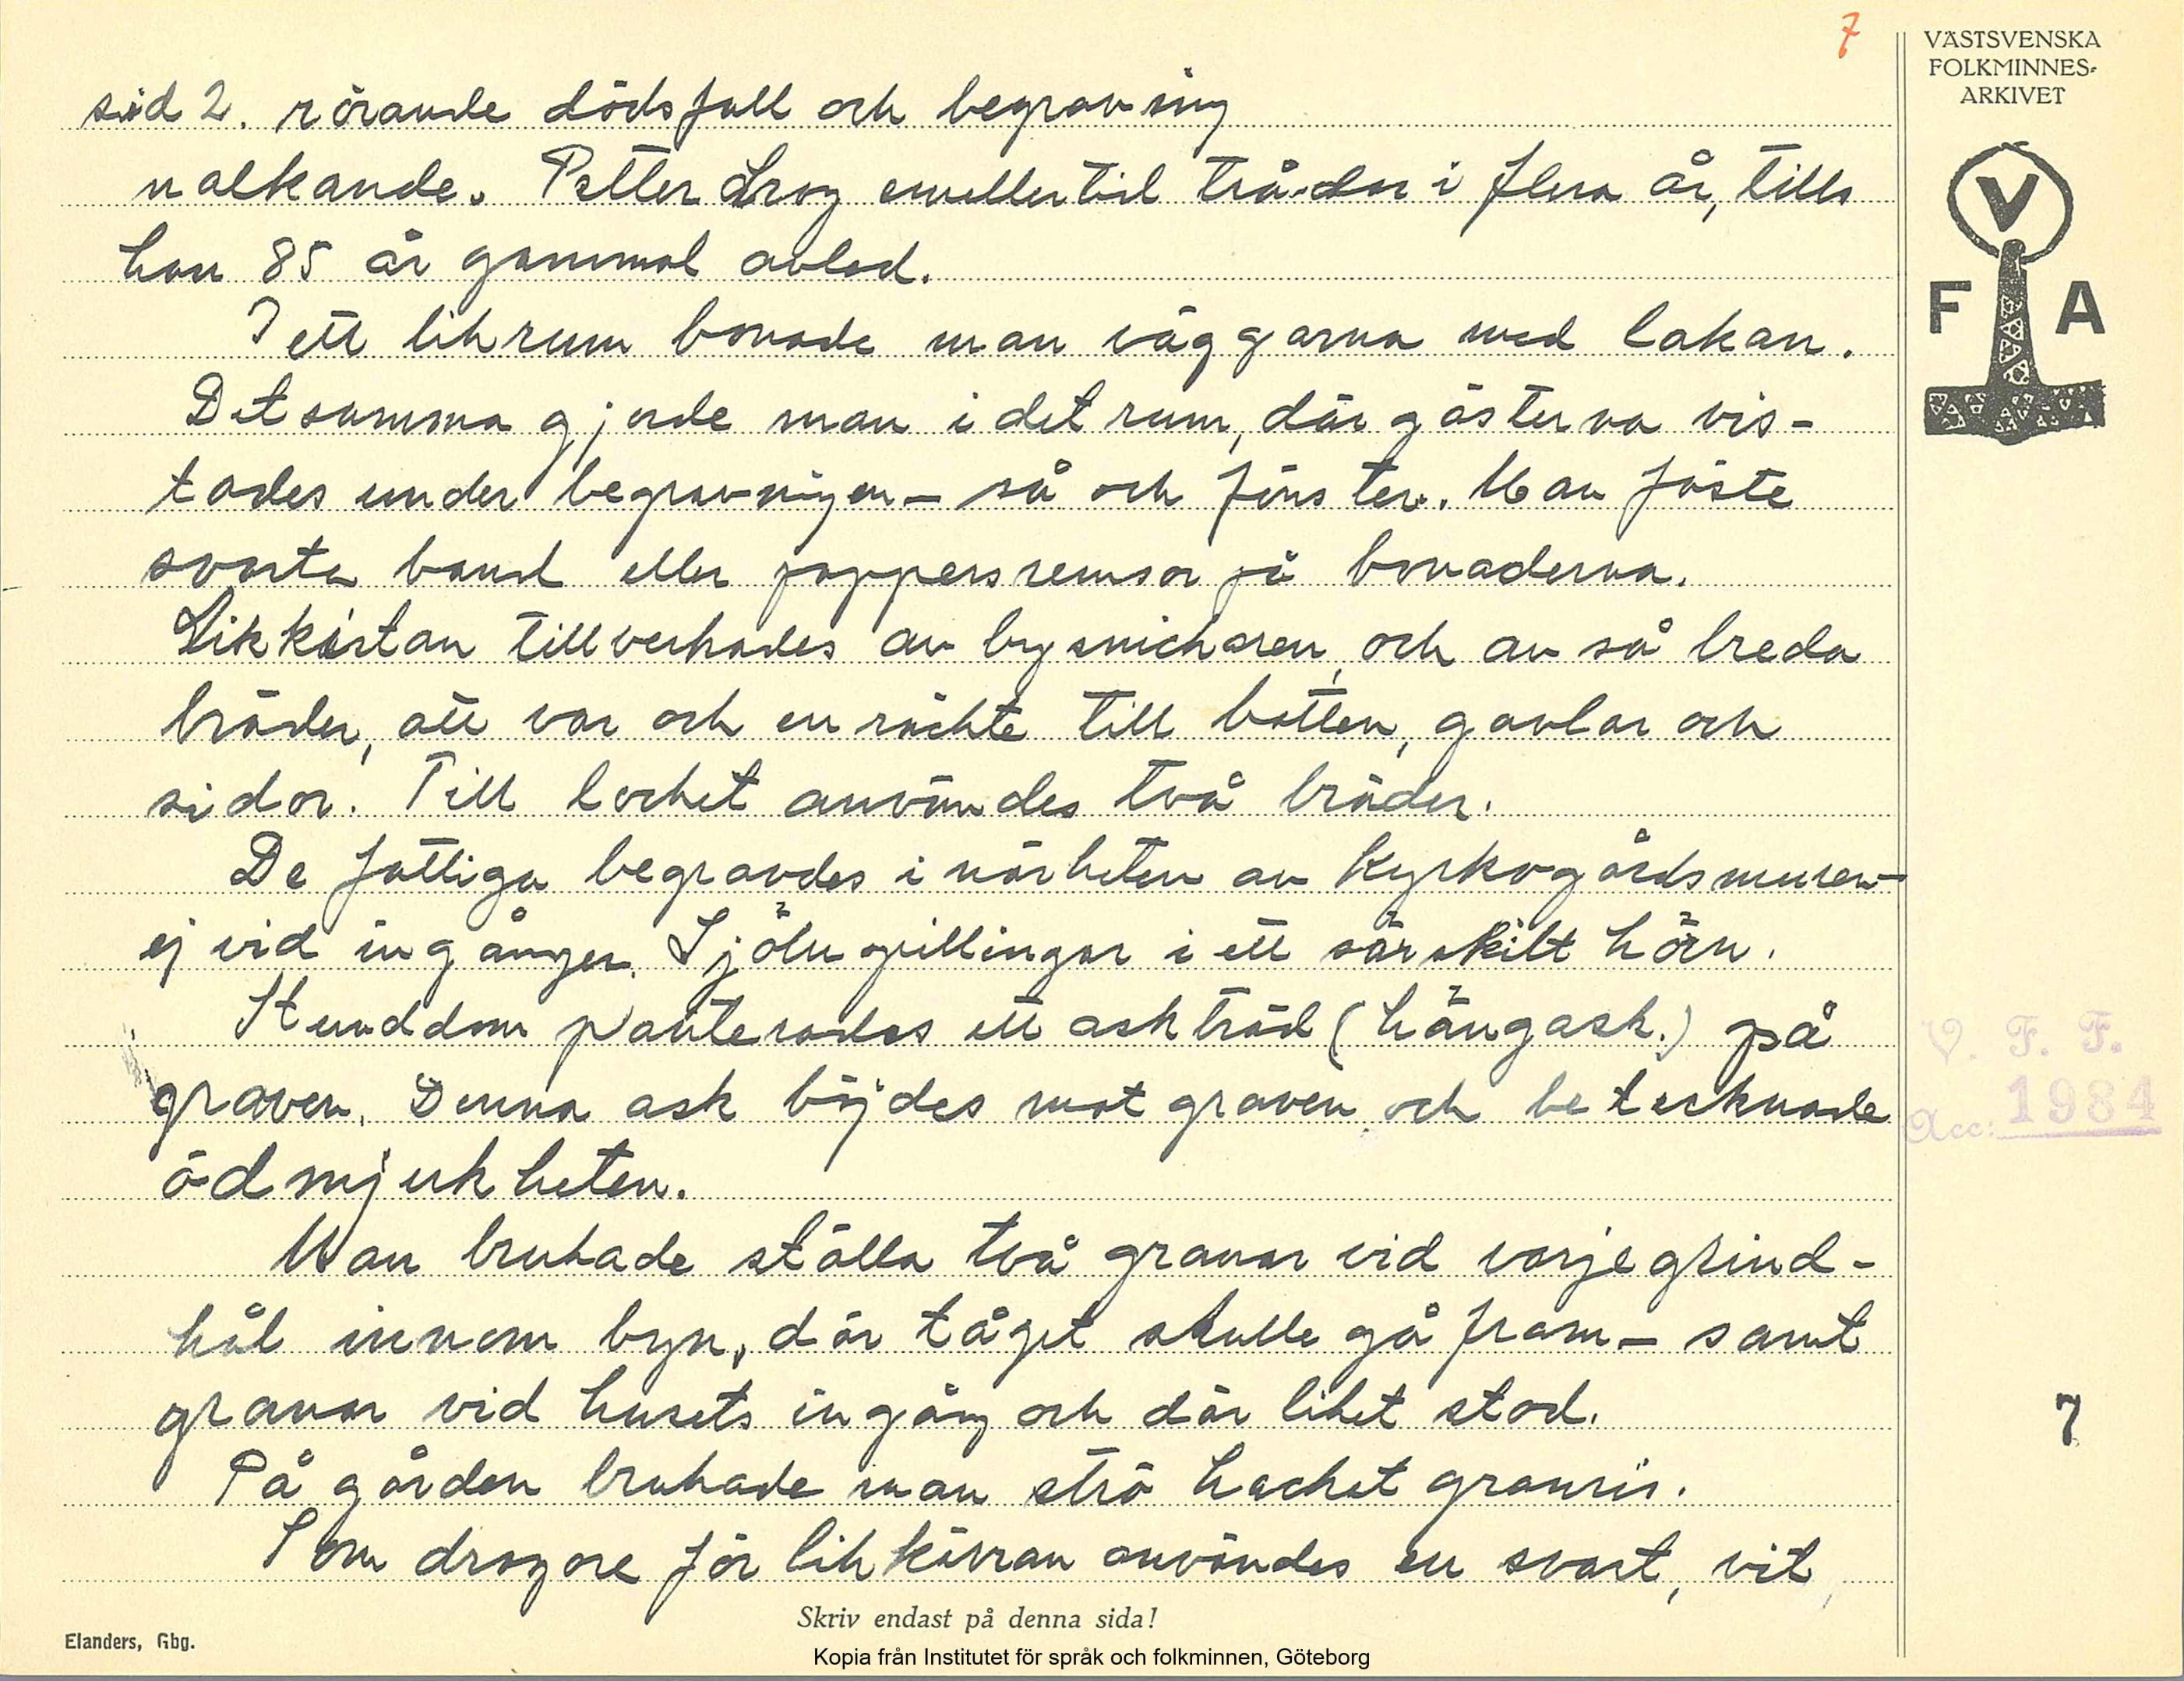 7
VÄSTSVENSKA
FOLKMINNES-
ARKIVET
V
F A
sid 2. rörande dödsfall och begravning
nalkande. Petter drog emellertid trå-dar i flera år, tills
han 85 år gammal avled.
I ett likrum bonade man väggarna med lakan.
Detsamma gjorde man i det rum, där gästerna vis-
tades under begravningen – så och fönster. Man fäste
svarta band eller pappersremsor på bonaderna.
Likkistan tillverkades av bysnickaren, och av så breda
bräder, att var och en räckte till botten, gavlar och
sidor. Till locket användes två bräder.
De fattiga begravdes i närheten av kyrkogårdsmuren –
ej vid ingången. Självspillingar i ett särskilt hörn.
Stunddom planterades ett askträd (hängask.) på
graven. Denna ask böjdes mot graven och betecknade
ödmjukheten.
Man brukade ställa två granar vid varje grind-
hål innom byn, där tåget skulle gå fram – samt
granar vid husets ingång och där liket stod.
På gården brukade man strö hacket granris.
Som dragare för likkärran användes en svart, vit,
V. F. F.
Acc: 1984
7
Skriv endast på denna sida!
Elanders, Gbg.
Kopia från Institutet för språk och folkminnen, Göteborg